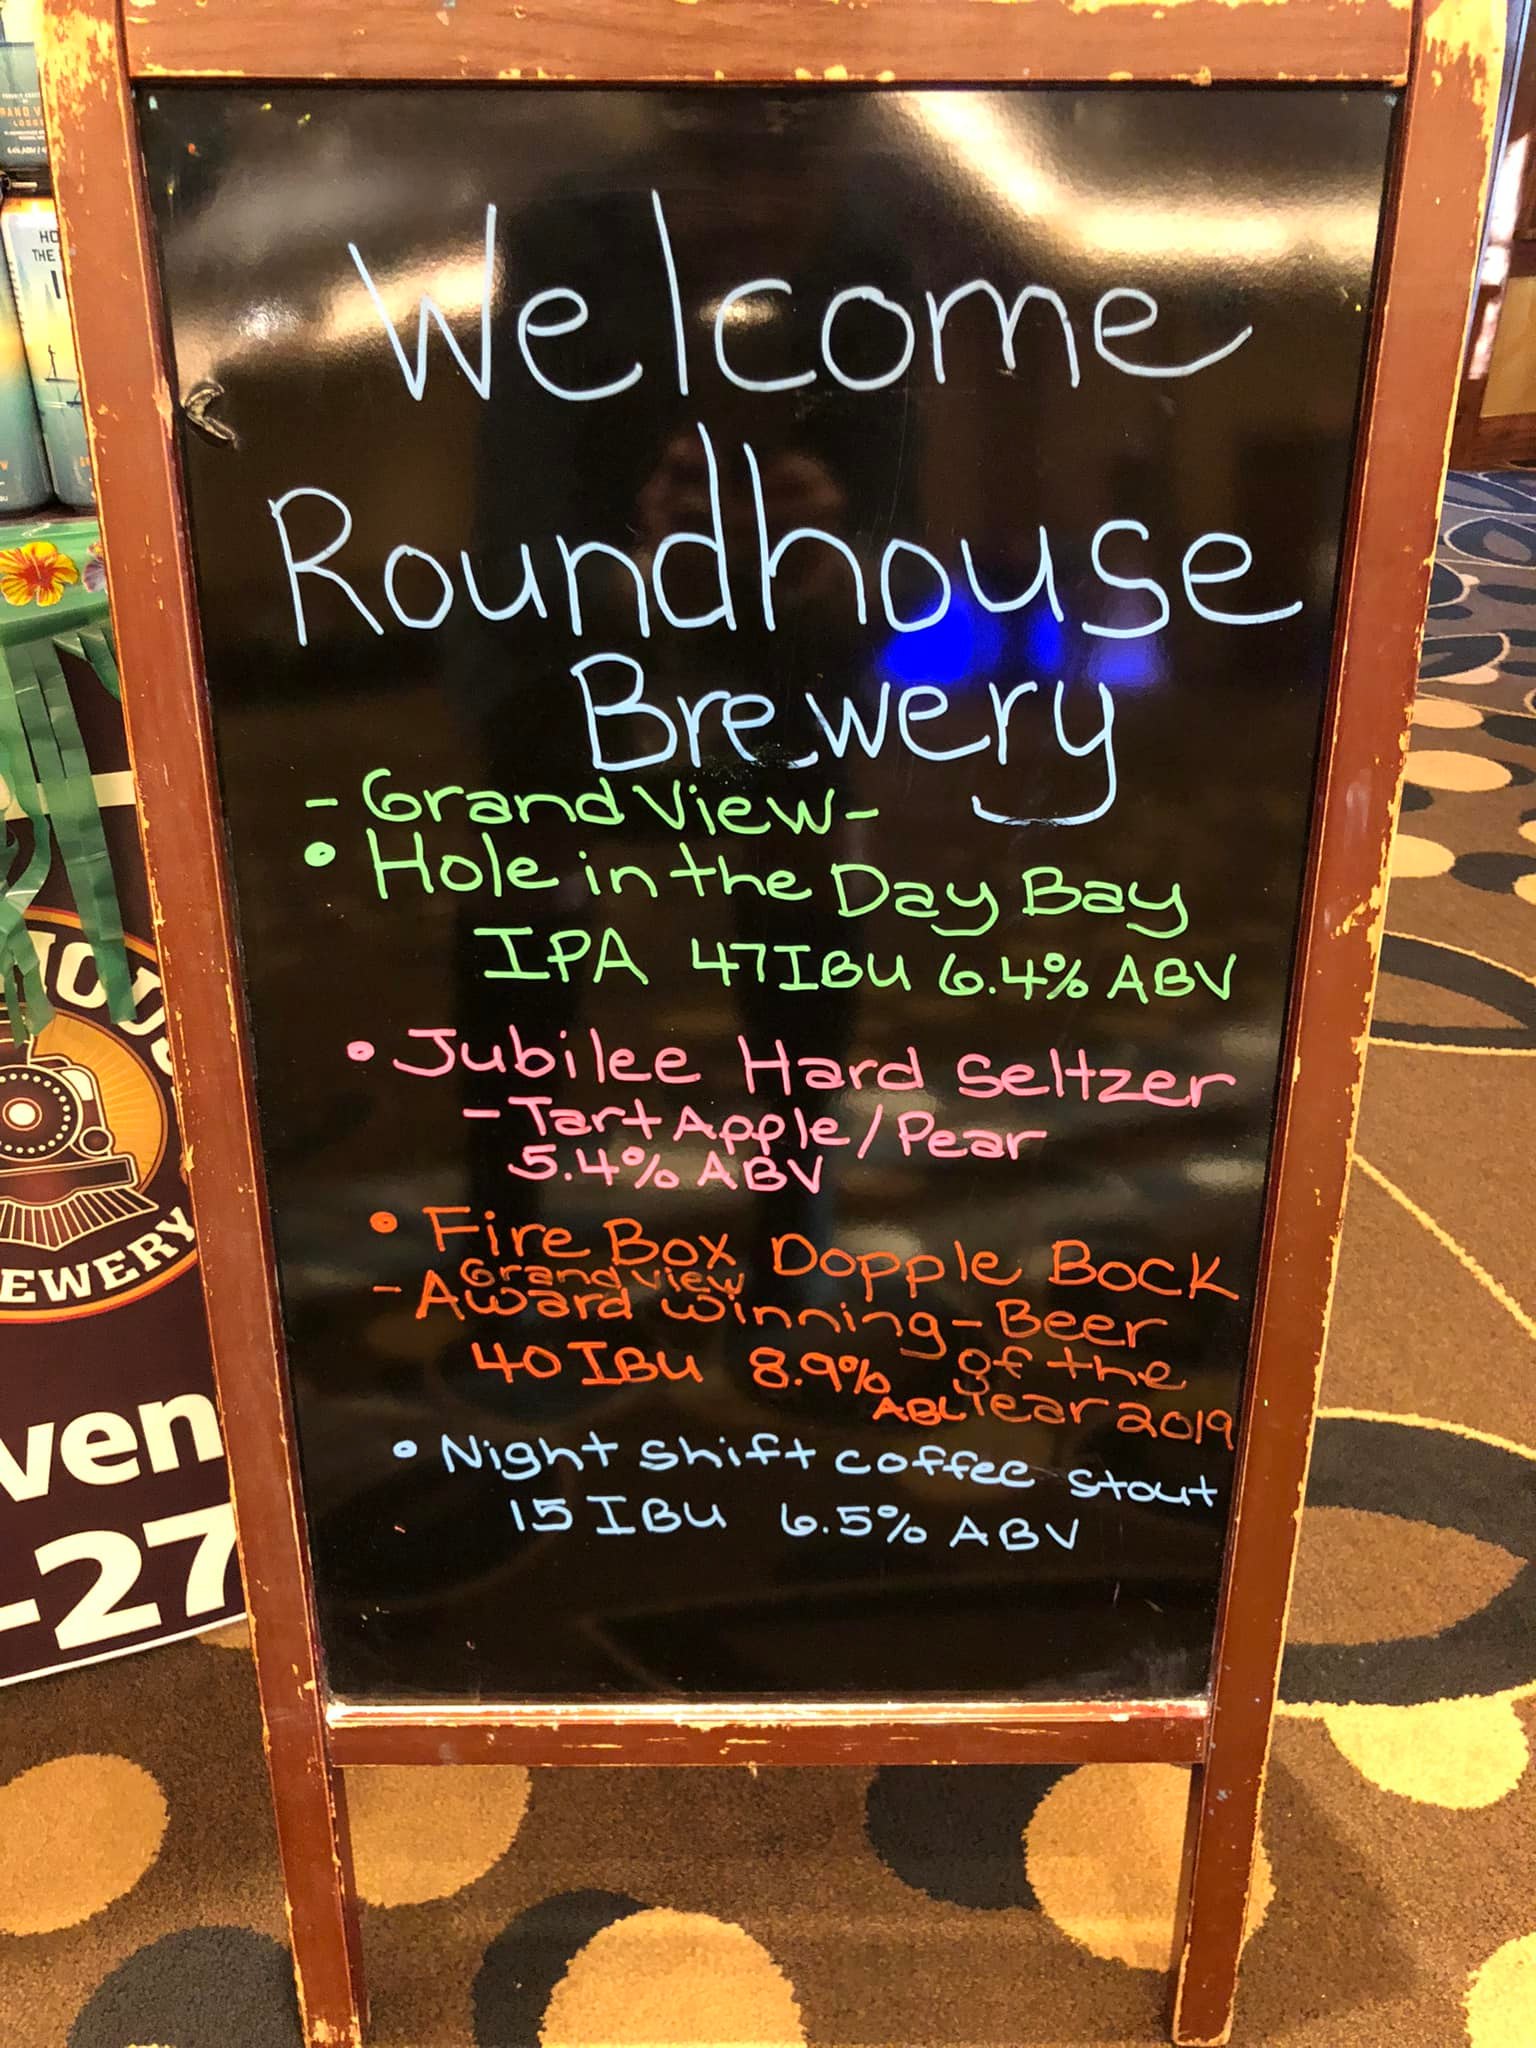 Welcome
Roundhouse
Brewery
- Grand View -
• Hole in the Day Bay
IPA 47 IBU 6.4% ABV
• Jubilee Hard Seltzer
- Tart Apple / Pear
5.4% ABV
• Fire Box Dopple Bock
Grand view
- Award winning - Beer
of the
40 IBU 8.9%
ABV Year 2019
• Night shift coffee stout
15 IBU 6.5% ABV
HO
THE
EWERY
ven
-27